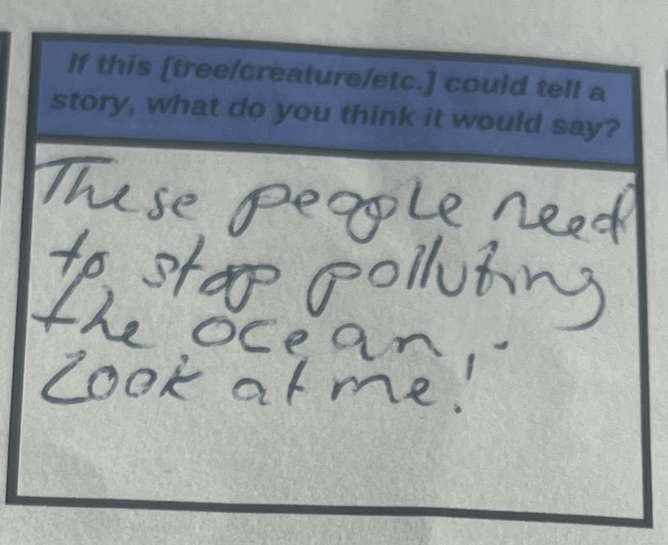 If this [tree/creature/etc.] could tell a
story, what do you think it would say?
These people need
to stop polluting
the ocean,
Look at me!